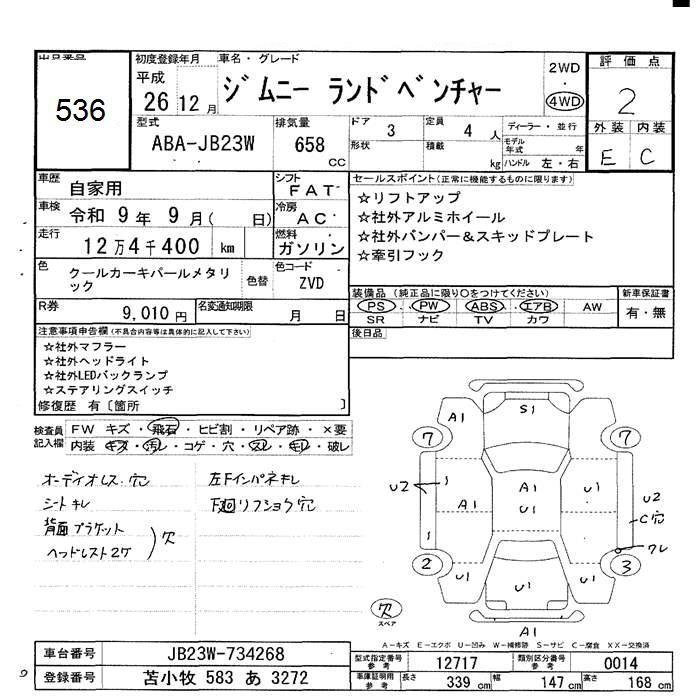 出品番号
536
初度登録年月
平成
26年12月
車名・グレード
ジムニー ランドベンチャー
2WD
4WD
評価点
2
型式
ABA-JB23W
排気量
658
CC
ドア
3
定員
4
人
形状
積載
kg
ディーラー・並行
モデル年式
年
ハンドル 左・右
外装 内装
E C
車歴
自家用
シフト
FAT
車検
令和 9年 9月( 日)
冷房
AC
走行
12万4千400 km
燃料
ガソリン
色
クールカーキパールメタリ
ック
色替
色コード
ZVD
R券
9,010円
名変通知期限
月 日
セールスポイント(正常に機能するものに限ります)
☆リフトアップ
☆社外アルミホイール
☆社外バンパー&スキッドプレート
☆牽引フック
装備品 (純正品に限り○をつけてください)
PS・PW・ABS・エアB・AW
SR ナビ TV カワ
新車保証書
有・無
後日品
注意事項申告欄(不具合内容等は具体的に記入して下さい)
☆社外マフラー
☆社外ヘッドライト
☆社外LEDバックランプ
☆ステアリングスイッチ
修復歴 有〔箇所 〕
検査員
記入欄
FW キズ・飛石・ヒビ割・リペア跡・×要
内装 キズ・汚レ・コゲ・穴・スレ・キレ・破レ
オーディオレス.穴
シートキレ
背面ブラケット
ヘッドレスト2ケ
欠
左下インパネキレ
下廻リフショク穴
A1
S1
7
7
U2
1
A1
A1
U1
U1
U2
C穴
1
ワレ
2
3
U1
U1
U1
欠
スペア
A1
A-キズ E-エクボ U-凹み W-補修跡 S-サビ C-腐食 XX-交換済
車台番号
JB23W-734268
登録番号
苫小牧 583 あ 3272
型式指定番号
参考
12717
類別区分番号
参考
0014
車庫証明用
参考
長さ
339 cm
幅
147 cm
高さ
168 cm